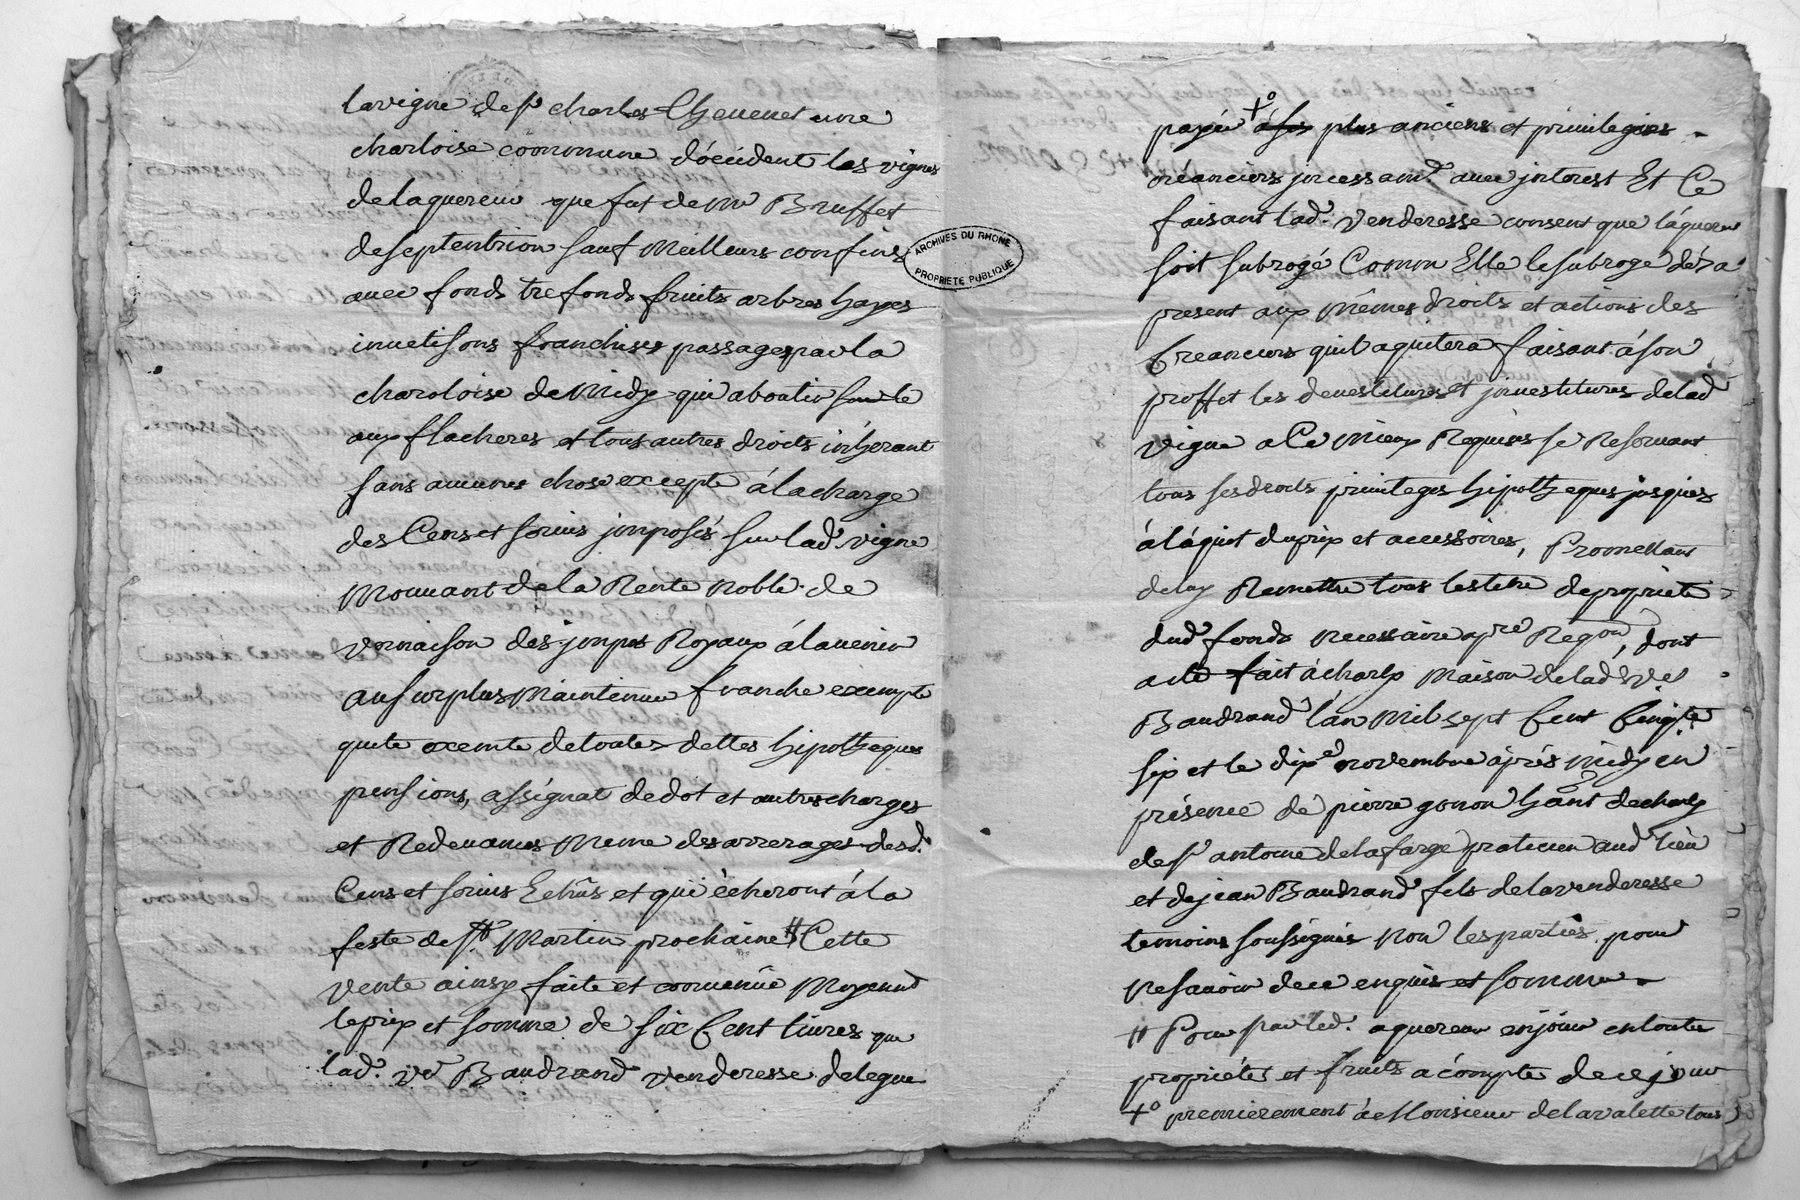 la vigne de sr charles Thevenet une
charloise commune d'occident les vignes
de laquereur que fut de Mr Bruffet
de septentrion sauf Meilleurs confins
avec fonds trefonds fruits arbres hayes
invetisons franchises passages par la
charloise de Midy qui aboutit sur le
aux flacheres et tous autres droits inherant
sans aucunes chose excepté à la charge
des Cens et servis imposés sur lad. vigne
Mouvant de la Rente Noble de
Vernaison des impos Royaux à lavenir
au surplus Maintenue franche exempte
quite exemte de toutes dettes hipotheques
pensions, assignat de dot et autres charges
et Redevances Meme des arrerages desd.
Cens et servis Echus et qui écheront à la
feste de St Martin prochaine # Cette
Vente ainsy faite et convenüe Moyent
le prix et somme de six Cent livres que
lad. Ve Baudrand Venderesse delegue
ARCHIVES DU RHONE
PROPRIETE PUBLIQUE
payée +o à ses plus anciens et privilegiés
créanciers incessamt avec interest Et Ce
faisant lad. Venderesse consent que láquereur
soit subrogé Comm Elle le subroge dés a
present aux Mêmes droits et actions des
Creanciers quil aquitera faisant à son
proffit les devestitures et investitures de lad
Vigne a Ce Mieux Requises se Reservant
tous ses droits privileges hipotheques jusques
à láquit du prix et accessoires, Promettant
de luy Remettre tous les titre de proprieté
dud fonds necessaire apre Reqon, dont
acte fait à charly Maison de lad Ve
Baudrand lán Mil sept Cent Vingte
six et le dixe novembre áprés Midy en
présence de pierre gonon hant de charly
de sr antoine delafarge praticien aud lieu
et de jean Baudrand fils de la venderesse
temoins soussignés Non les parties pour
Ne savoir de ce enquis et somme
# Pour par led. aquereur enjouir en toutes
propriétés et fruits a cómpte de ce jour
+o premierement à Monsieur de lavalette tous